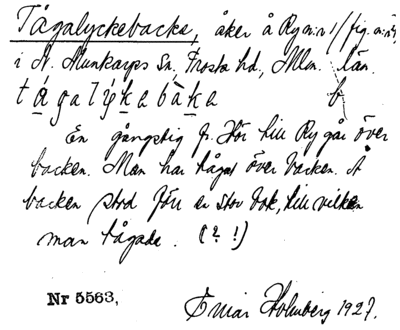 Tågalyckebacke, åker å Ry n:r 1 / fig. n:r
i N. Munkarps Sn, Frosta hd, Mlm. län.
tågalykabaka b
En gångstig fr. Hör till Ry går över
backen. Man har tågat över backen. Å
backen stod förr en stor bok, till vilken
man tågade. (?!)
Nr 5563,
Einar Holmberg 1927.